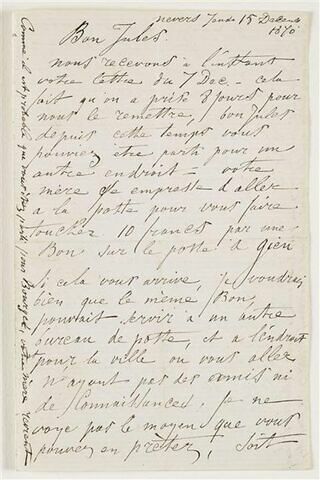 nevers Jeudi 15 Decembre
1870
Bon Jules
nous recevons à l'instant
votre lettre du 7 Dec. - cela
fait qu'on a prise 8 jours pour
nous le remettre, bon Jules
depuis cette temps vous
pouviez être parti pour un
autre endroit - votre
mère s'empresse d'aller
a la poste pour vous faire
toucher 10 francs par une
Bon sur le poste d Gien
Si cela vous arrive, je voudrai
bien que le même Bon,
pourrait servir a un autre
bureau de poste, et a l'endroit
pour la ville ou vous allez
N'ayant pas des amis ni
de Connaissances, je ne
voye pas le moyen que vous
pouvez en prêter, soit
Comme il est probable que vous êtes parti pour Bourges, votre mère revient